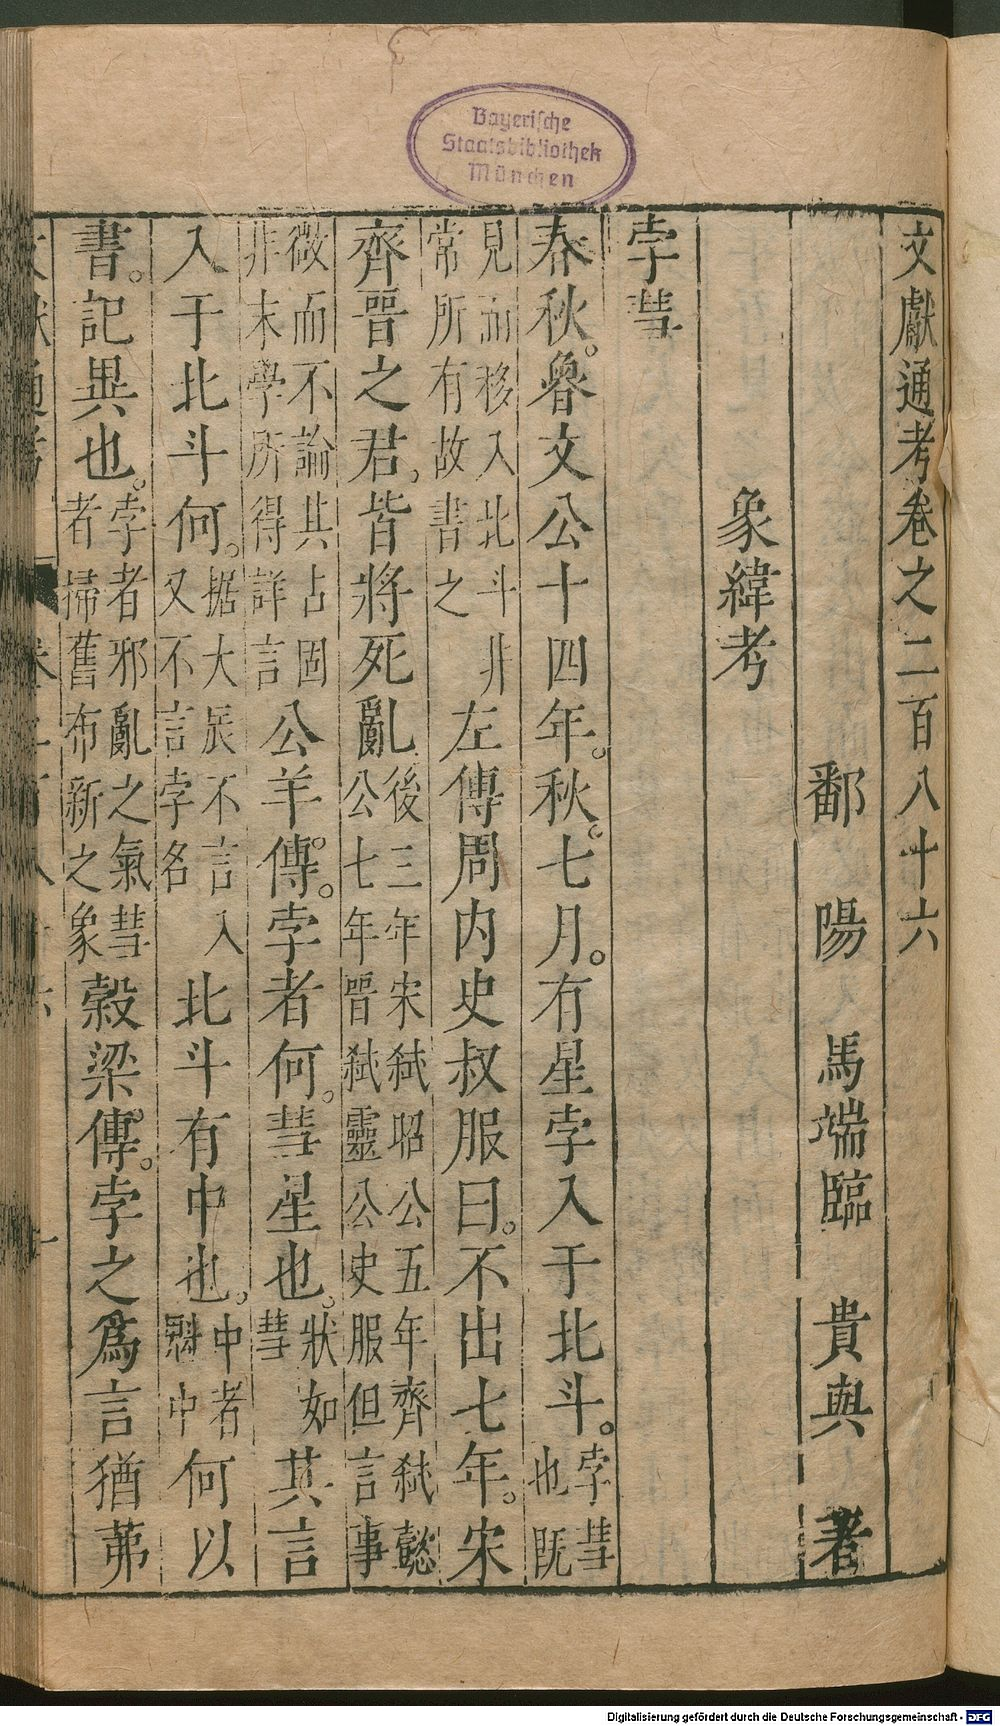 Bayerische
Staatsbibliothek
München
文獻通考卷之二百八十六
鄱陽馬端臨貴與著
象緯考
孛彗
春秋。魯文公十四年。秋。七月。有星孛入于北斗。孛彗也既
見而移入北斗非常所有故書之左傳周内史叔服曰。不出七年。宋
齊晉之君,皆將死亂後三年宋弑昭公五年齊弑懿公七年晉弑靈公史服但言事
微而不論其占固非末學所得詳言公羊傳。孛者何。彗星也。狀如彗其言
入于北斗何。据大辰不言入又不言孛名北斗有中也。中者魁中何以
書。記異也。孛者邪亂之氣彗者掃舊布新之象穀梁傳。孛之爲言猶茀
Digitalisierung gefördert durch die Deutsche Forschungsgemeinschaft - DFG